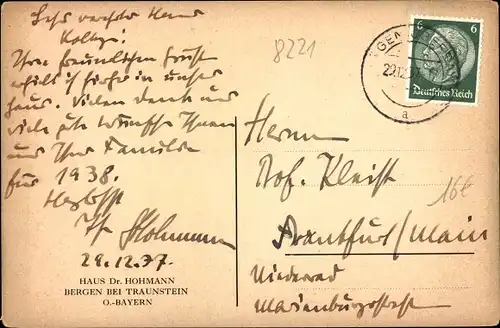 Sehr verehrter Herr
Ihre freundlichen Grüße
erhielt ich hierher in unser
Haus. Vielen Dank und
viele gute Wünsche Ihnen
und Ihrer Familie
für 1938.
Herzlichst
Ihr Hohmann
29.12.37.
HAUS Dr. HOHMANN
BERGEN BEI TRAUNSTEIN
O.-BAYERN
8221
6
Deutsches Reich
a
Herrn
Prof. Kleist
16€
Frankfurt/Main
Niederrad
Marienburgstraße